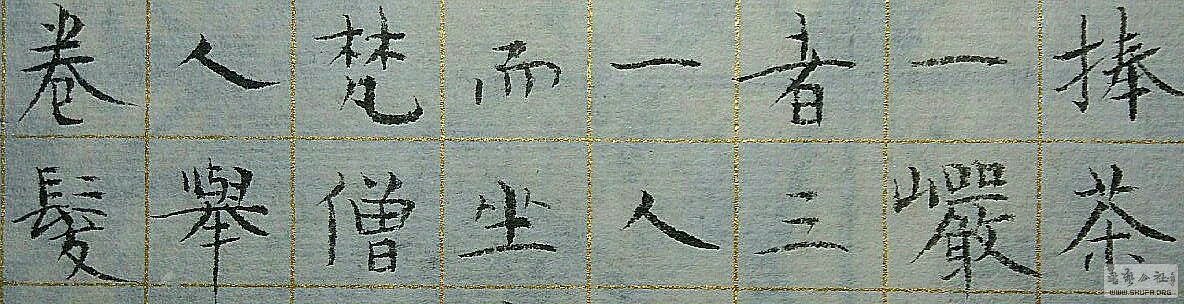 捧茶
一巖
者三
一人
而坐
梵僧
人舉
卷髮